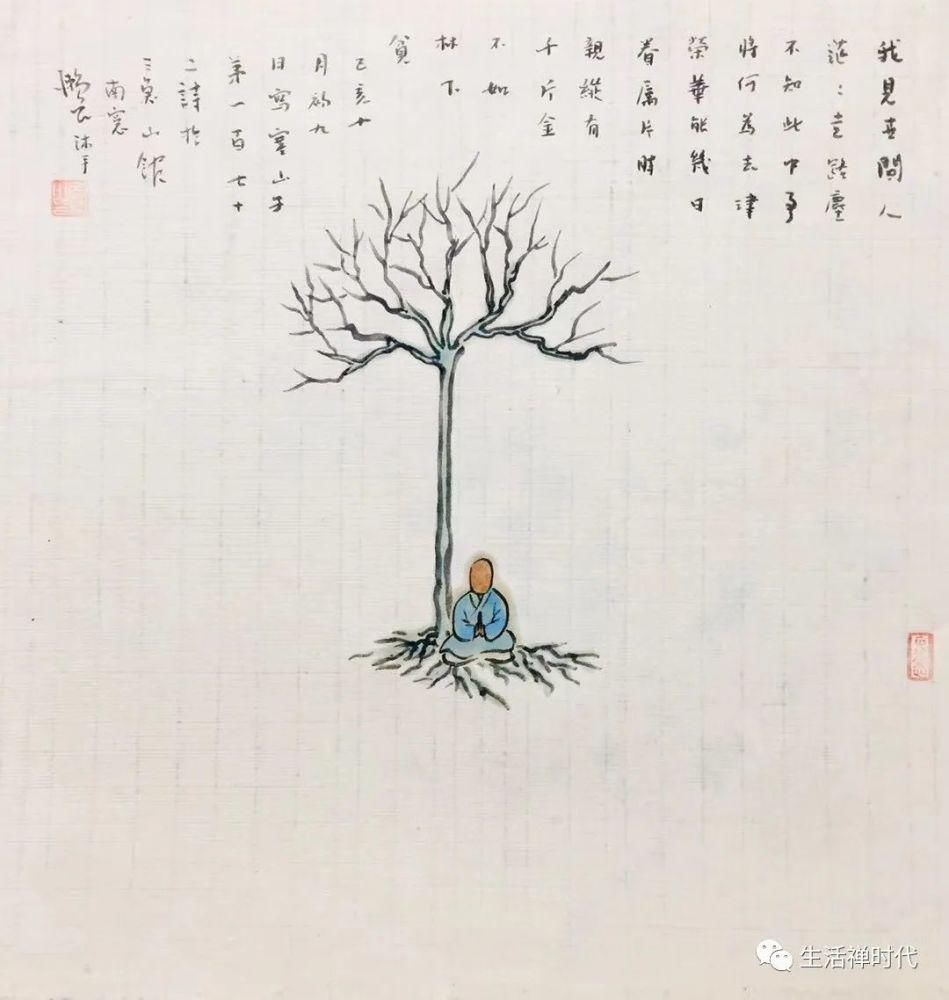 我見世間人
茫〻走路塵
不知此中事
將何為去津
榮華能幾日
眷屬片時
親縱有
千斤金
不如
林下
貧
己亥十
月初九
日寫寒山子
第一百七十
二詩於
三魚山館
南窗
沐手
生活禅时代